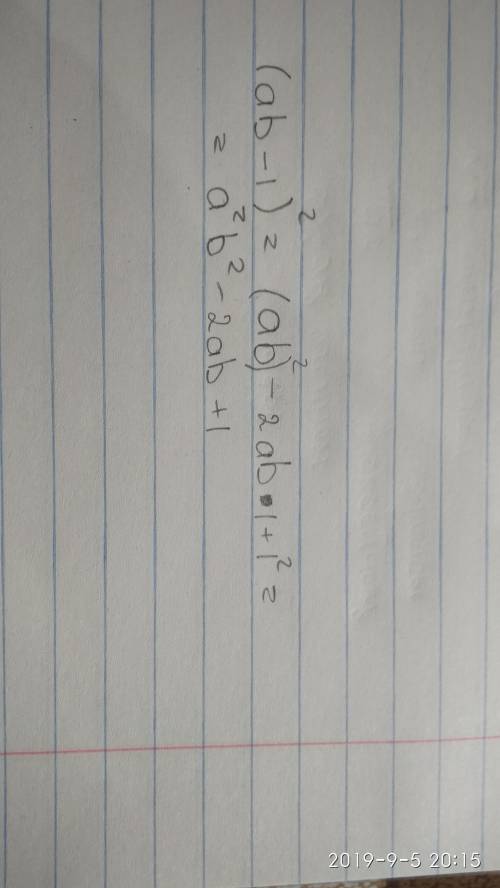 (ab-1)² = (ab)² - 2ab·1+1² =
= a²b² - 2ab +1
2019-9-5 20:15